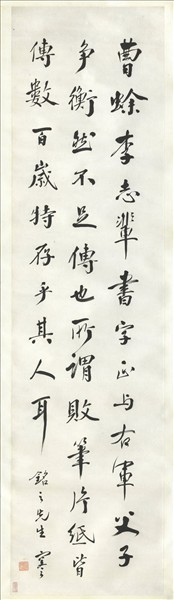 曹蜍李志輩書字正与右軍父子
争衡然不足傳也所謂敗筆片紙皆
傳數百歲特存乎其人耳
銘之先生 寒